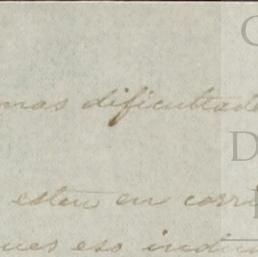 mas dificultade
esten en corri
ues eso indic